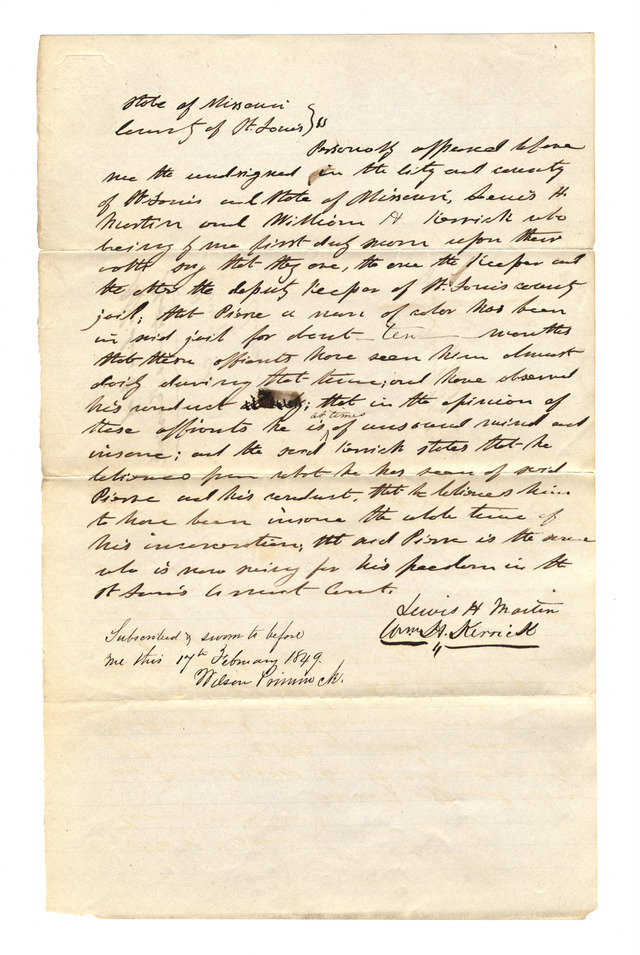 State of Missouri
County of St. Louis } ss
Personally appeared before
me the undsigned in the City and county
of St Louis and State of Missouri, Lewis H
Martin and William H Kerrick who
being by me first duly sworn upon their
oaths say that they are, the one the Keeper and
the other the deputy Keeper of St. Louis county
jail; that Pierre a man of color has been
in said jail for about ten months
that these affiants have seen him almost
daily during that time; and have observed
his conduct ; that in the opinion of
these affiants he is at times of unsound mind and
insane; and the said Kerrick states that he
believes from what he has seen of said
Pierre and his conduct, that he believes him
to have been insane the whole time of
his incarceration; that said Pierre is the same
who is now suing for his freedom in the
St Louis Circuit Court.
Lewis H Martin
Wm. H. Kerrick
Subscribed & sworn to before
me this 17th February 1849.
Wilson Primm Ck.